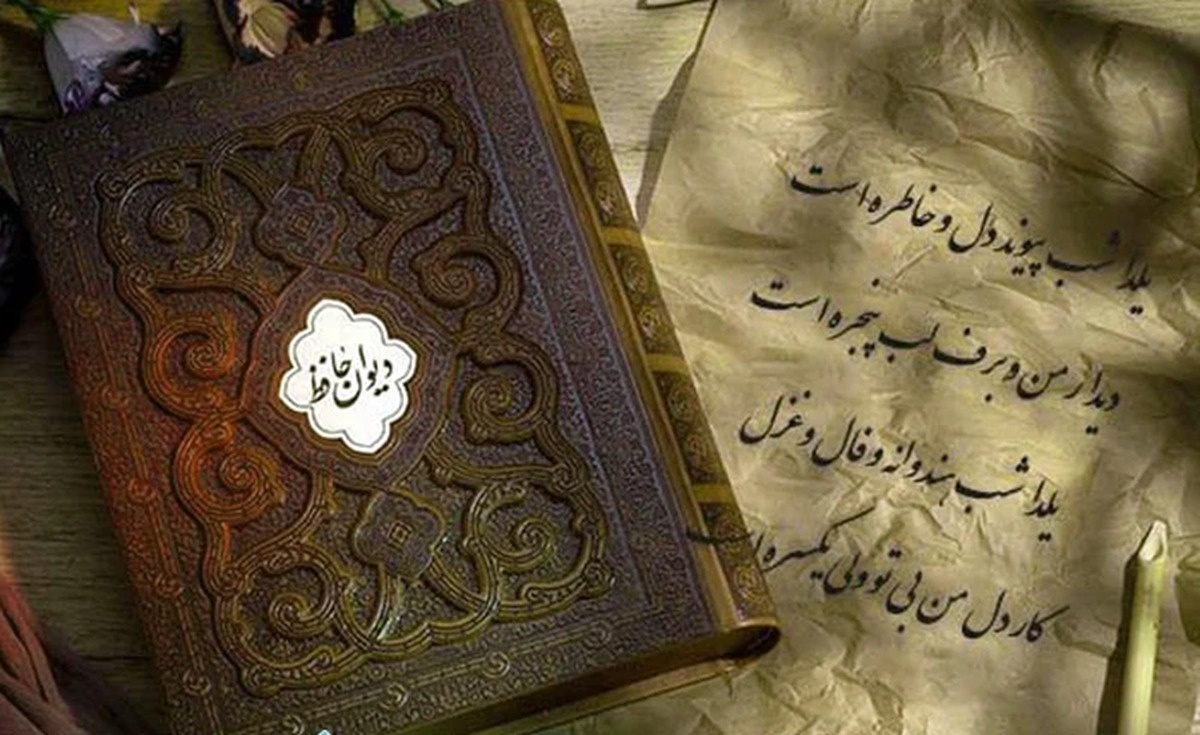 دیوان حافظ
یلدا شب پیوند دل و خاطره است
دیدار من و برف لب پنجره است
یلدا شب هندوانه و فال و غزل
کار دل من بی تو ولی یکسره است